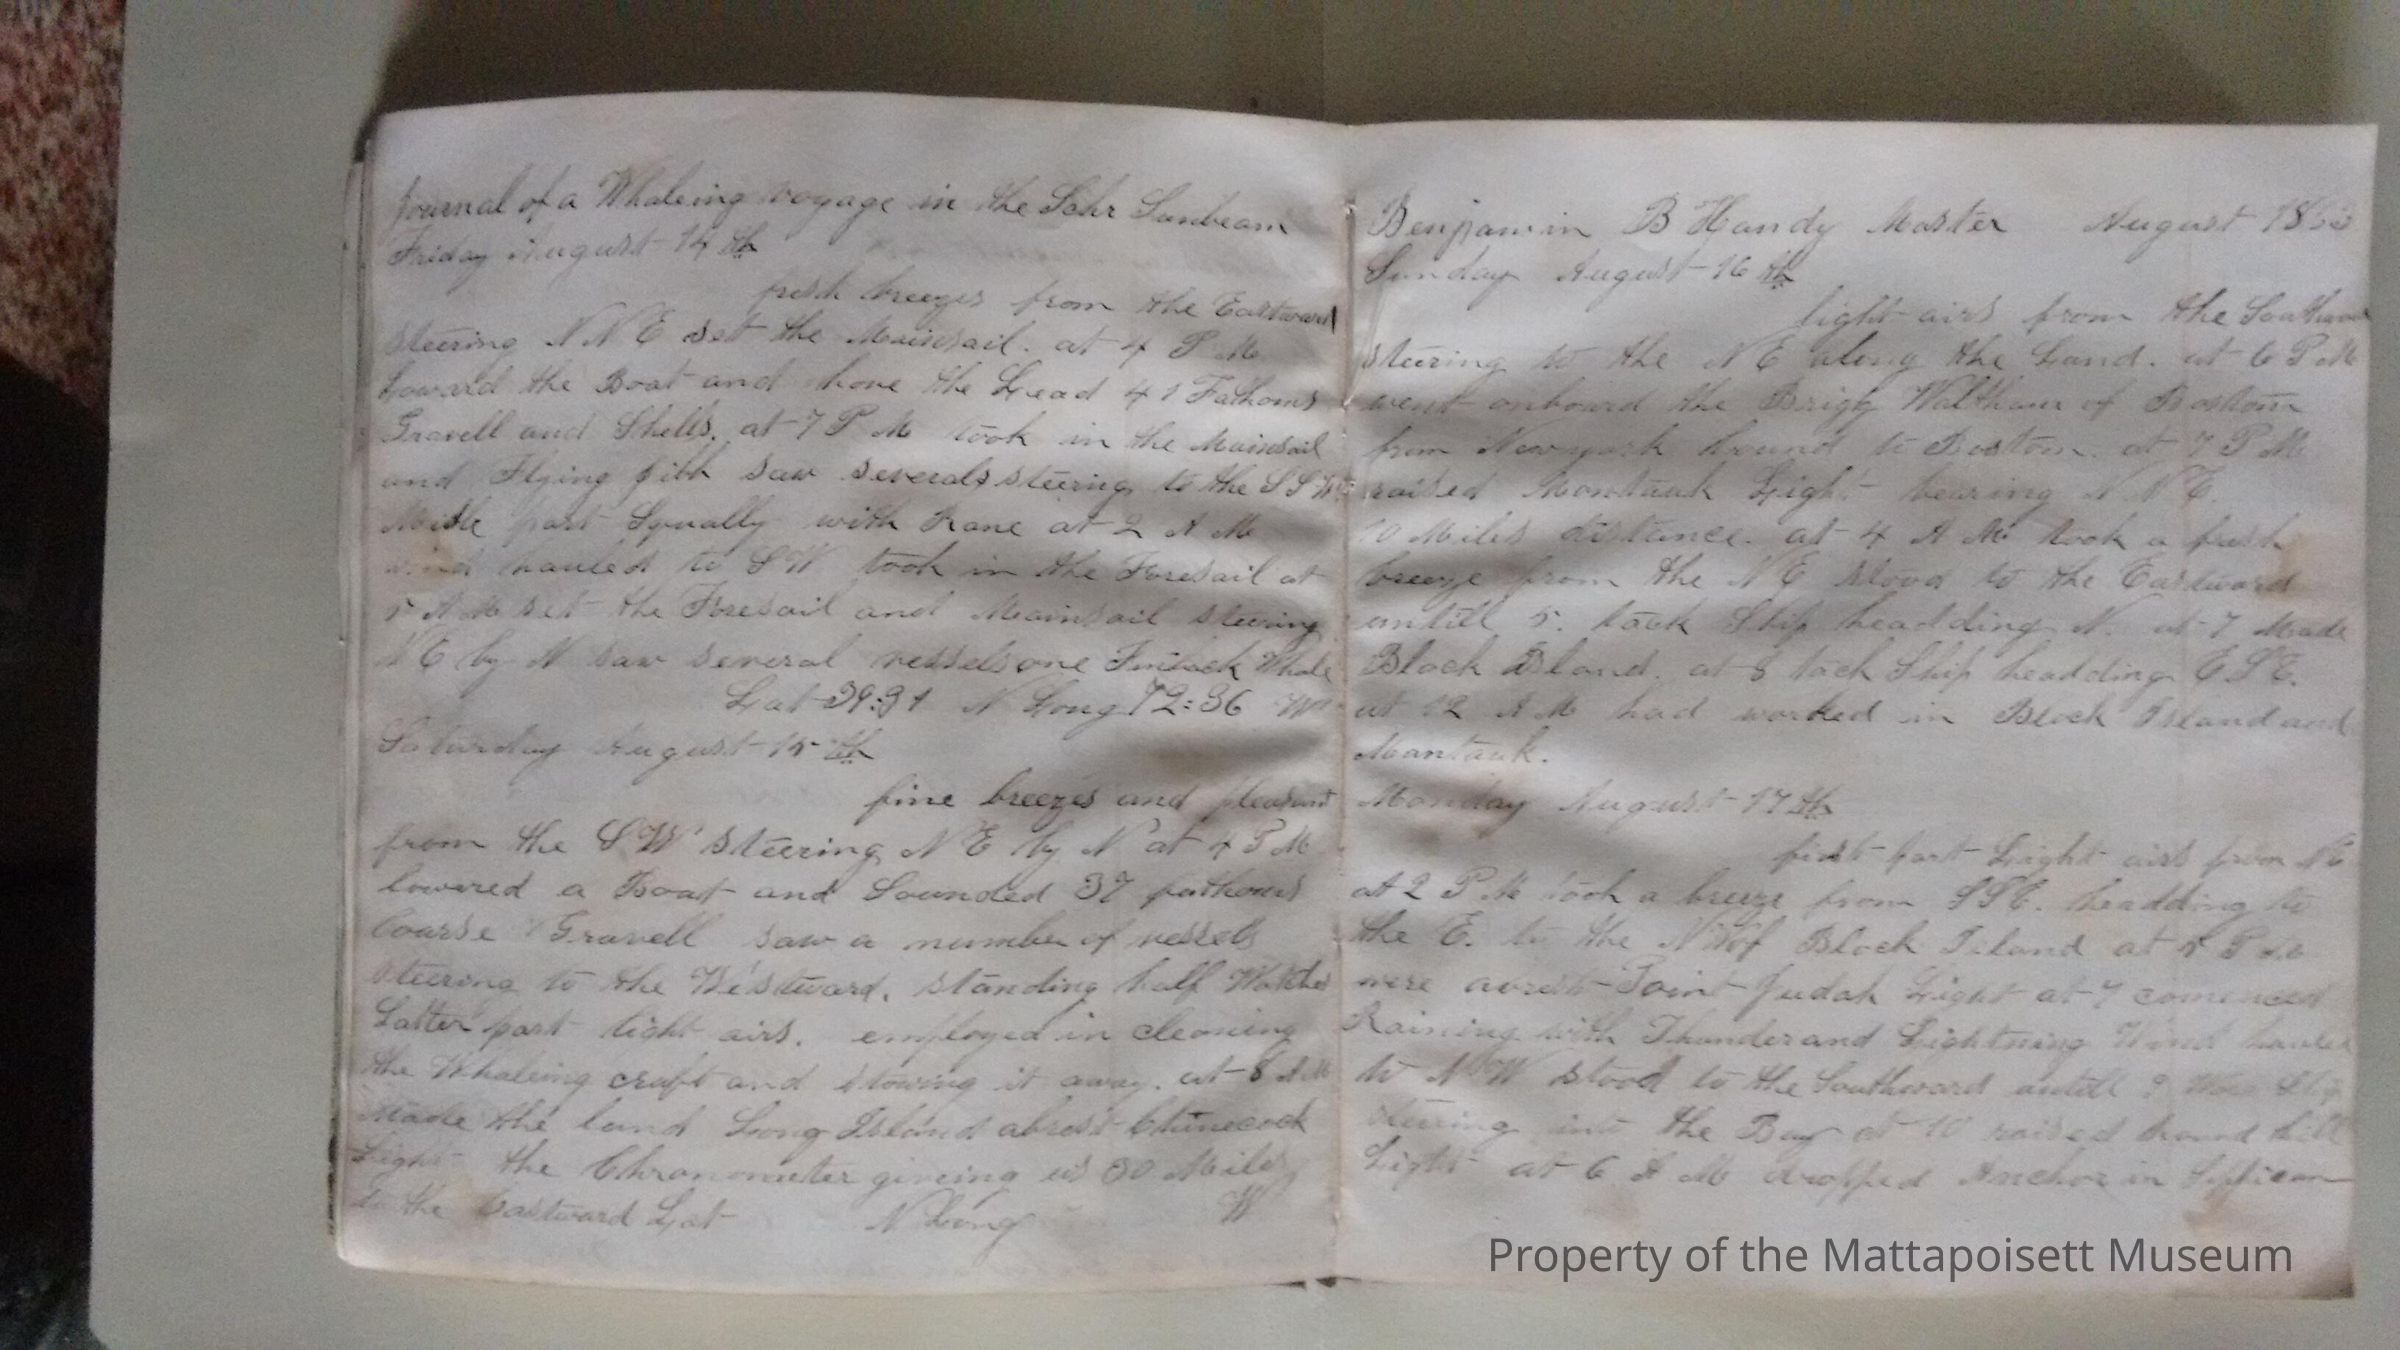 Journal of a Whaleing voyage in the Schr Sunbeam
Friday August 14th
fresh breezes from the Eastward
steering N N E set the Mainsail. at 4 P M
loward the Boat and hove the Lead 41 Fathoms
Gravell and Shells. at 7 P M took in the Mainsail
and Flying jibb saw severals steering to the S S W
Midle part Squally with Rane at 2 A M
wind hauled to S W took in the Foresail at
5 A M set the Foresail and Mainsail steering
N E by N saw several vessels one Finback Whale
Lat 39:31 N Long 72:36 W
Saturday August 15th
fine breezes and pleasant
from the S W steering N E by N at 4 P M
lowered a Boat and Sounded 37 fathoms
Coarse Gravell saw a number of vessels
steering to the Westward. standing half Watches
Latter part light airs. employed in cleaning
the Whaleing craft and stowing it away. at 8 A M
Made the land Long Island abrest
Light the Chronometer giveing us 30 Miles
to the Eastward Lat N Long W
Benjamin B Handy Master August 1863
Sunday August 16th
light airs from the Southward
steering to the N E along the Land. at 6 P M
went onboard the Brigg Waltham of Bostom
from Newyork bound to Bostom. at 7 P M
raised Montauk Light bearing N N E.
10 Miles distance. at 4 A M took a fresh
breeze from the N E stood to the Eastward
untill 5. tack Ship headding N. at 7 Made
Block Island. at 8 tack Ship headding E S E.
at 12 A M had worked in Block Island and
Mantauk.
Monday August 17th
first part Light airs from N E
at 2 P M took a breeze from S S E. headding to
the E. to the N W of Block Island at 5 P M
were avrest Point Judah Light at 7 comenced
Raining with Thunder and Lightning Wind hauled
to N W stood to the Southward untill 9 Wore Ship
steering into the Bay at 10 raised hill
Light at 6 A M dropped Anchor in Sippican
Property of the Mattapoisett Museum